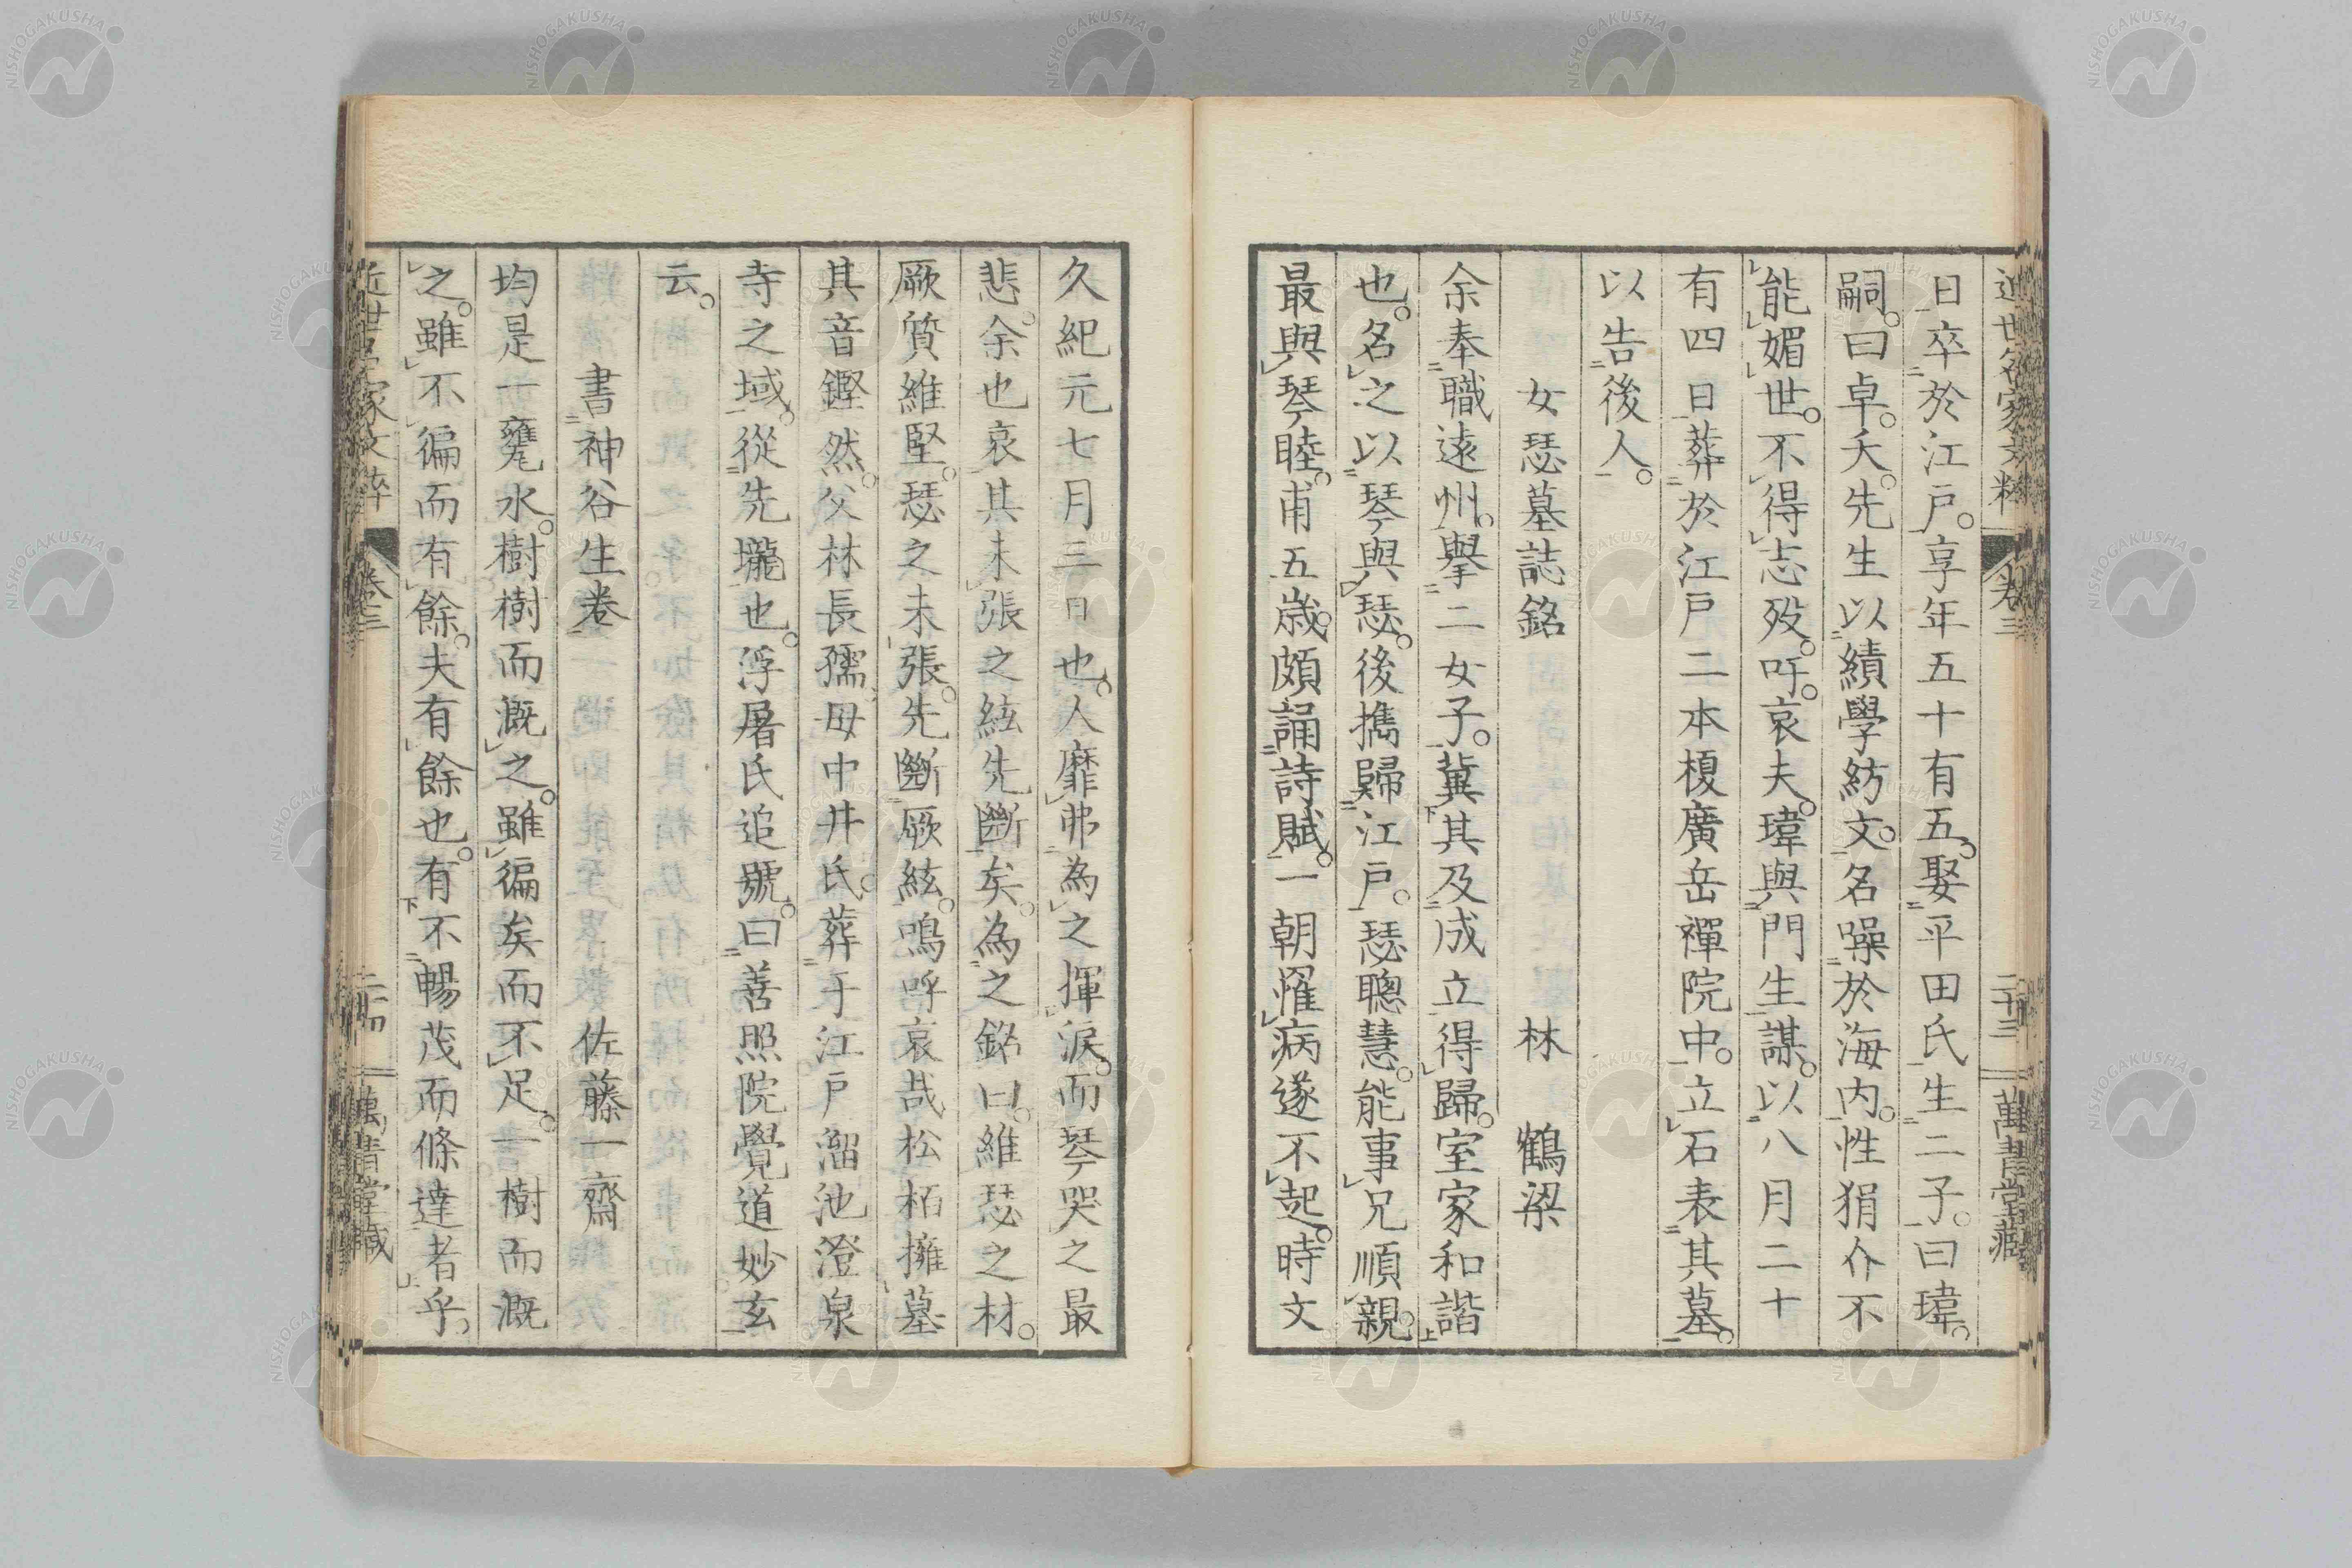 近世名家文粹 卷三 二十三 萬青堂藏
日卒於江戸。享年五十有五。娶平田氏生二子。曰瑋。
嗣。曰卓。夭。先生以績學紡文。名噪於海内。性狷介不
能媚世。不得志歿。吁。哀夫。瑋與門生謀。以八月二十
有四日葬於江戸二本榎廣岳禪院中。立石表其墓。
以告後人。
女瑟墓誌銘 林 鶴梁
余奉職遠州。擧二女子。冀其及成立得歸。室家和諧
也。名之以琴與瑟。後携歸江戸。瑟聰慧。能事兄順親。
最與琴睦。甫五歳。頗誦詩賦。一朝罹病遂不起。時文
久紀元七月三日也。人靡弗為之揮淚。而琴哭之最
悲。余也哀其未張之絃先斷矣。為之銘曰。維瑟之材。
厥質維堅。瑟之未張。先斷厥絃。鳴呼哀哉松柏擁墓
其音鏗然。父林長孺、母中井氏。葬于江戸溜池澄泉
寺之域。從先壠也。浮屠氏追號。曰善照院覺道妙玄
云。
書神谷生卷 佐藤一齋
均是一甕水。樹樹而漑之。雖徧矣而不足。一樹而漑
之。雖不徧而有餘。夫有餘也。有不暢茂而條達者乎。
近世名家文粹 卷三 二十四 萬青堂藏
NISHOGAKUSHA